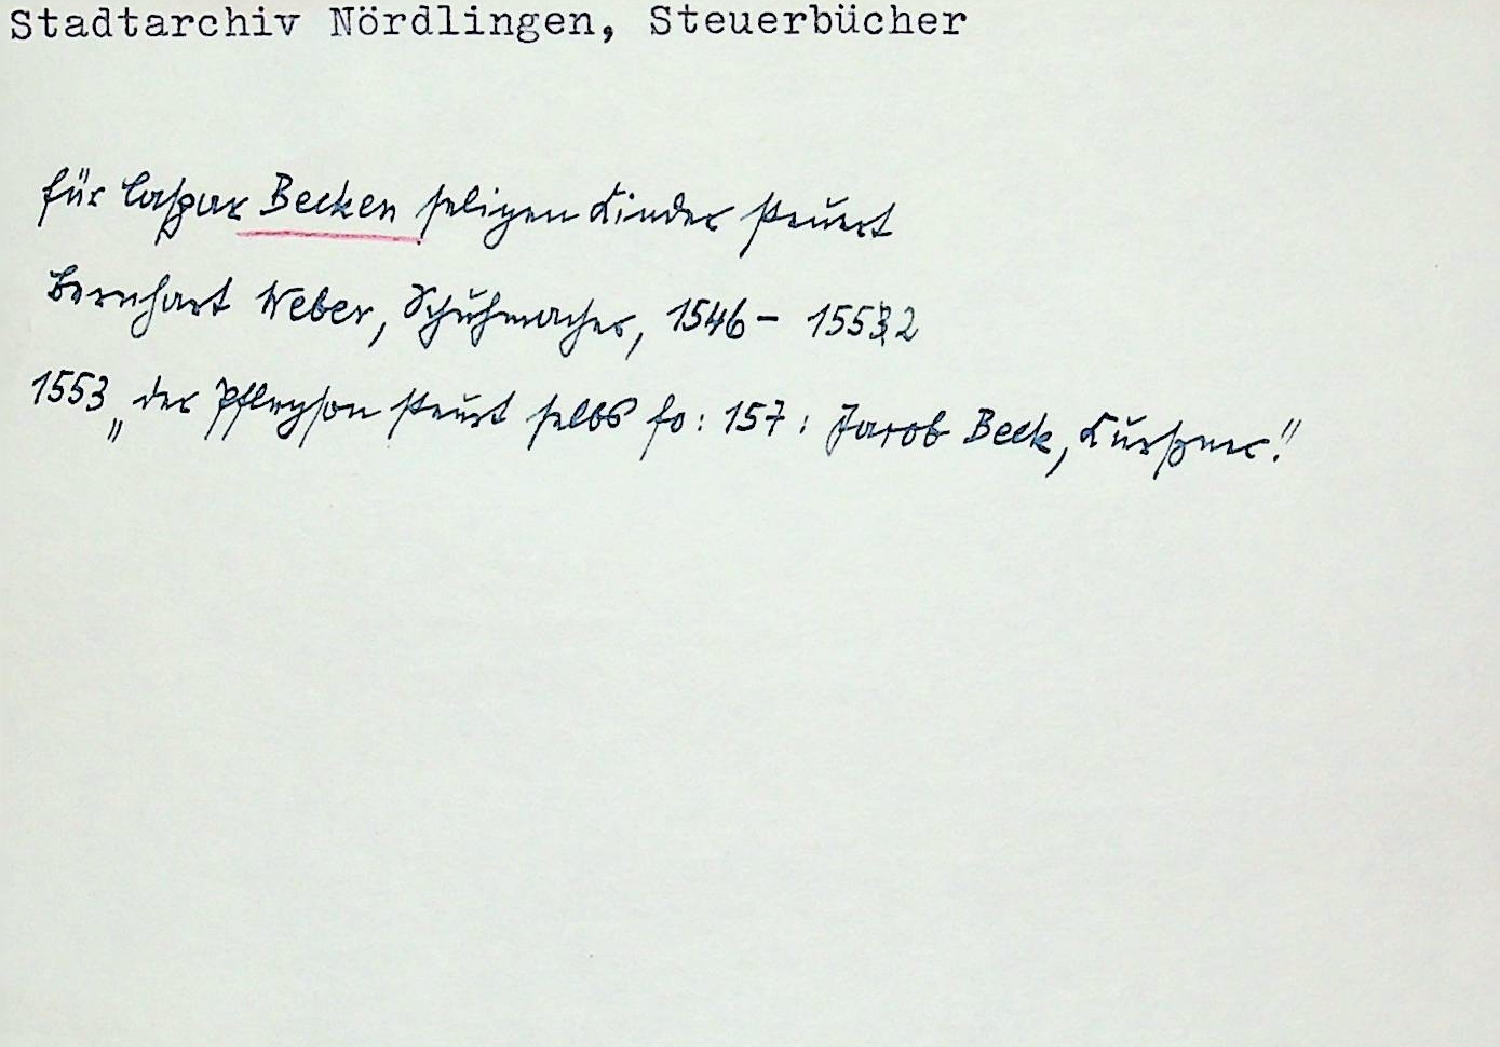 Stadtarchiv Nördlingen, Steuerbücher
für Caspar Becken seligen Kinder steuert
Bernhart Weber, Schuhmacher, 1546 - 1552
1553 „der Pflegson steurt selbs fo: 157: Jacob Beck, Kürsner."